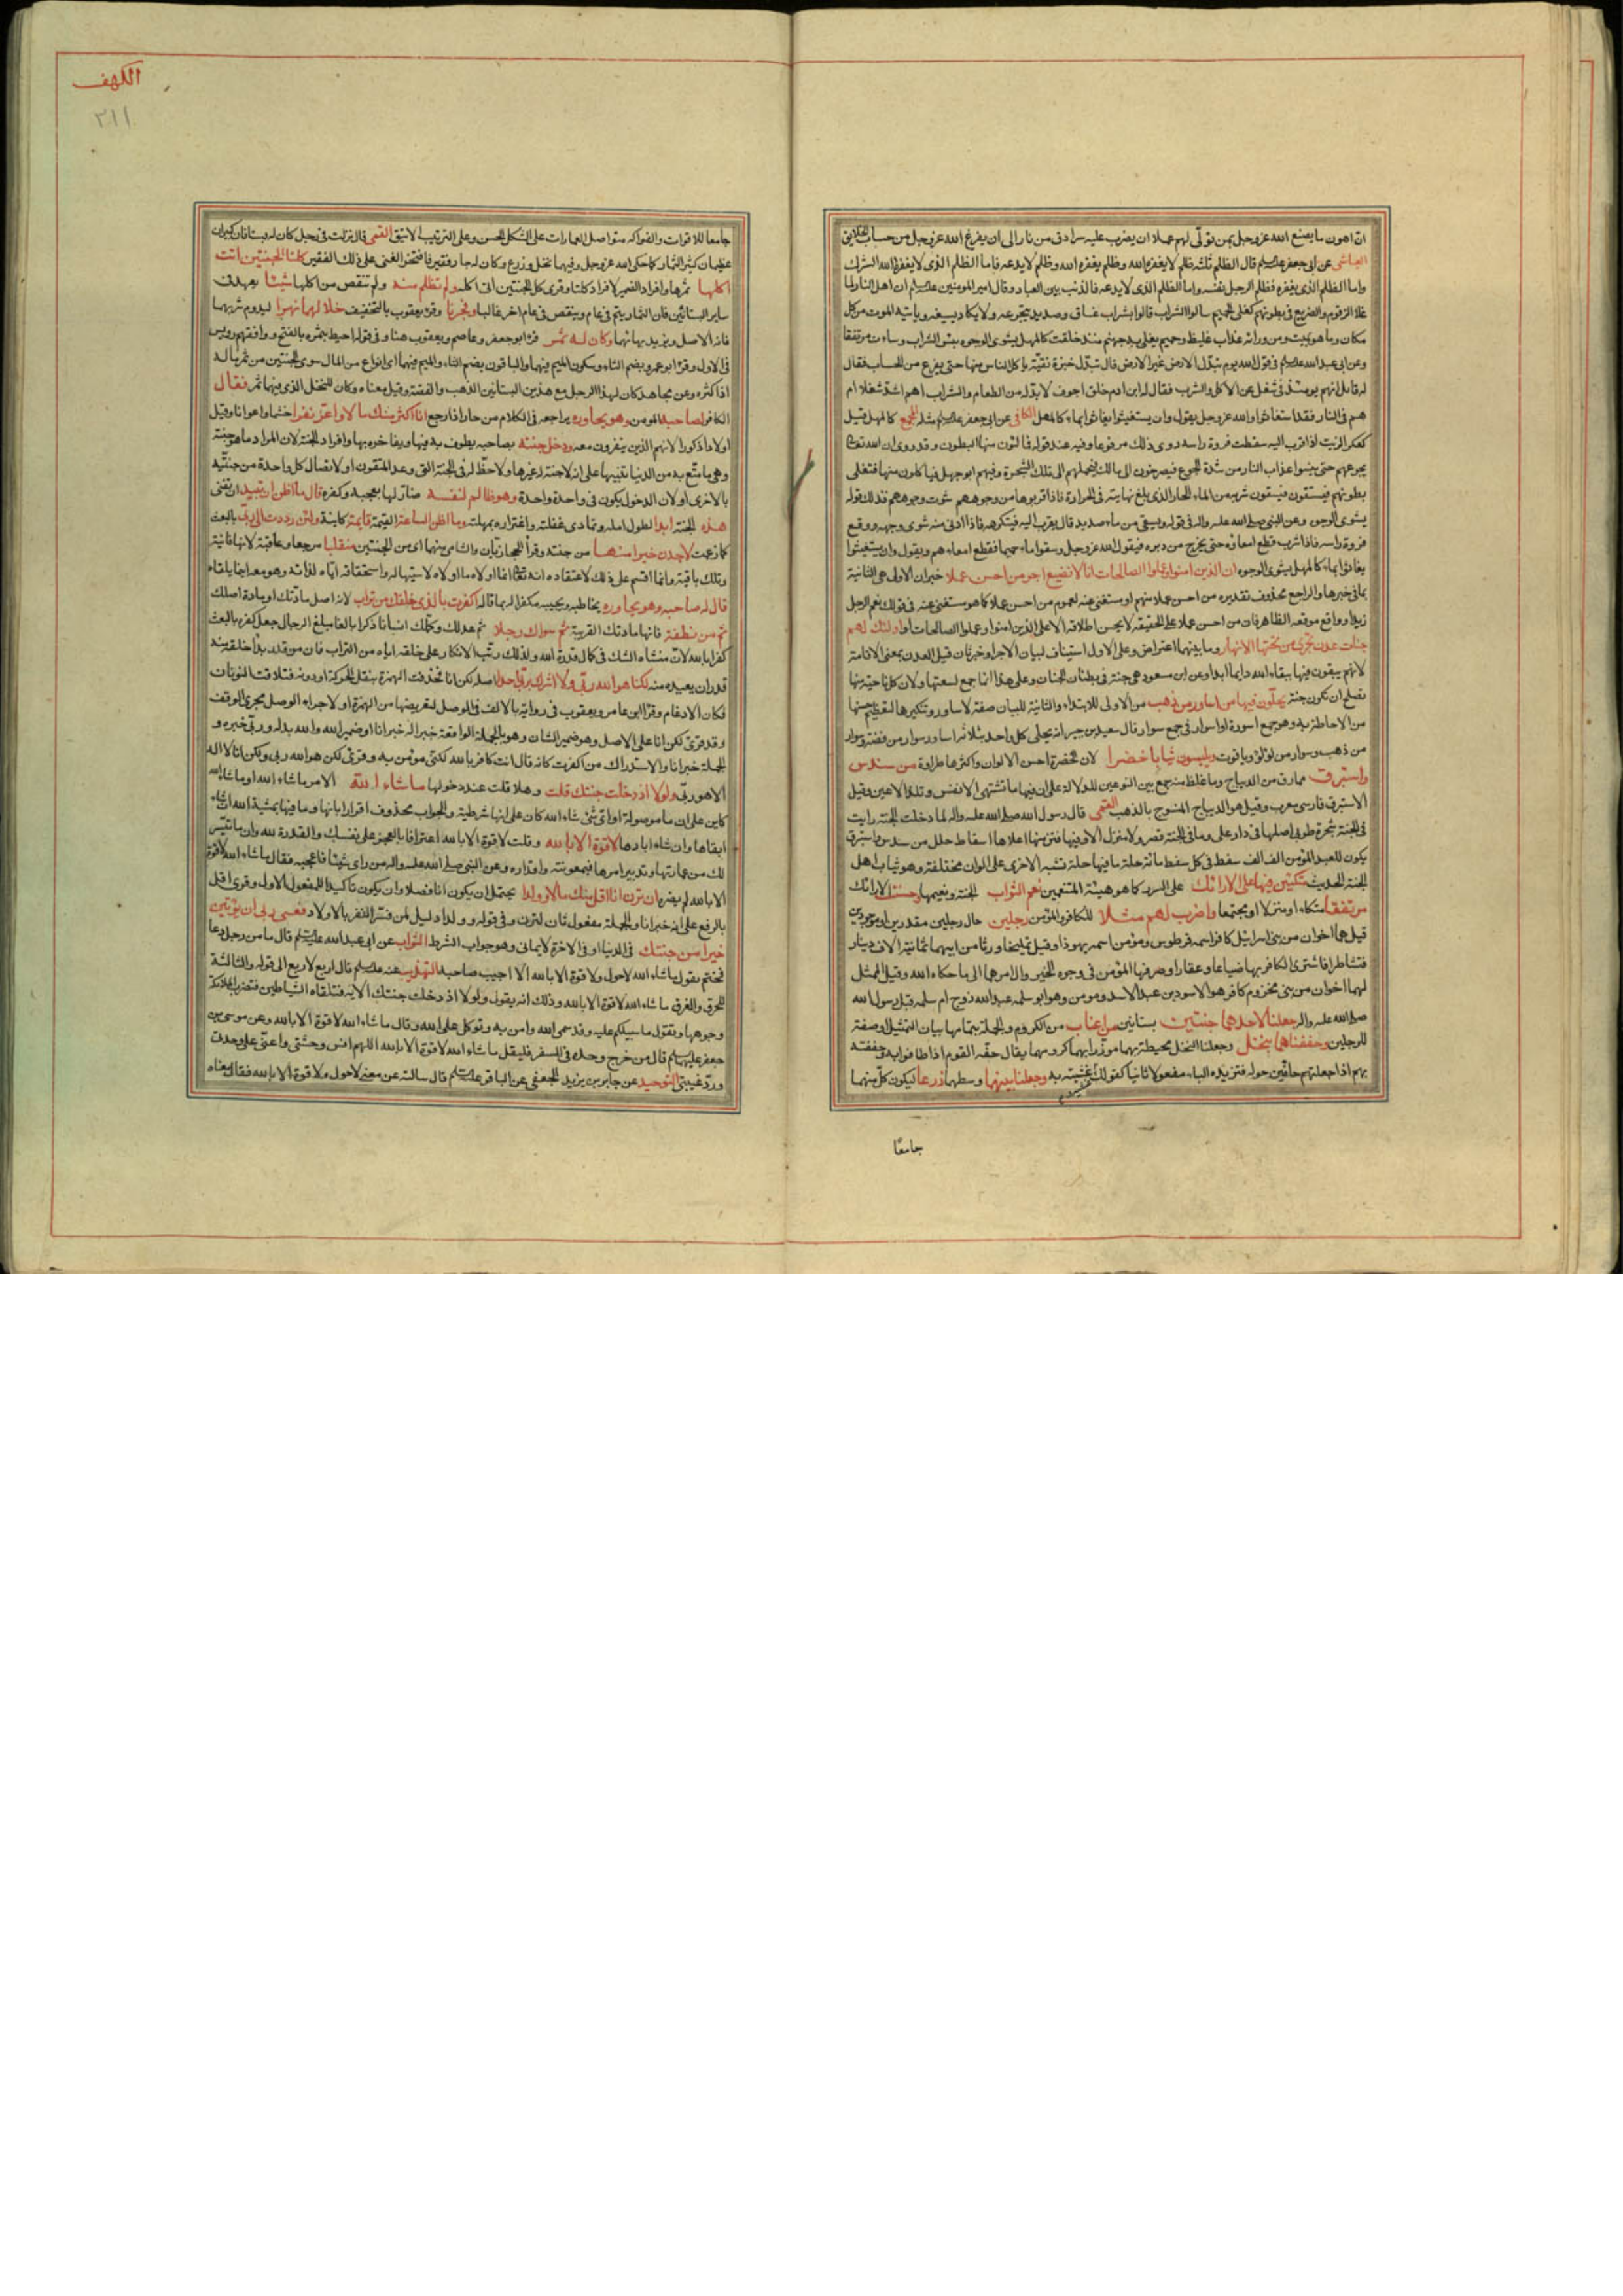 ان اهون ما يصنع الله عز وجل بمن تولى لهم عملا ان يضرب عليه سرادق من نار الى ان يفرغ الله عز وجل من حساب الخلايق
العياشى عن ابى جعفر عليه السلم قال الظلم ثلثه ظلم لا يغفره الله وظلم يغفره الله وظلم لا يدعه فاما الظلم الذى لا يغفره الله الشرك
واما الظلم الذى يغفره فظلم الرجل نفسه واما الظلم الذى لا يدعه فالذنب بين العباد وقال امير المومنين عليه السلم ان اهل النار لما
غلا الزقوم والضريع فى بطونهم كغلى الحميم سالوا الشراب فاتوا بشراب غساق وصديد يتجرعه ولا يكاد يسيغه وياتيه الموت من كل
مكان وما هو بميت ومن ورائه عذاب غليظ وحميم يغلى به جهنم منذ خلقت كالمهل يشوى الوجوه بئس الشراب وساءت مرتفقا
وعن ابى عبد الله عليه السلم فى قول الله يوم تبدل الارض غير الارض قال تبدل خبزة نقية ياكل الناس منها حتى يفرغ من الحساب فقال
له قايل انهم يومئذ فى شغل عن الاكل والشرب فقال له ابن ادم خلق اجوف لا بد له من الطعام والشراب اهم اشد شغلا ام
هم فى النار فقد استغاثوا والله عز وجل يقول وان يستغيثوا يغاثوا بماء كالمهل الكافى عن ابى جعفر عليه السلم مثله المجمع كالمهل قيل
كعكر الزيت اذا قرب اليه سقطت فروة راسه روى ذلك مرفوعا وفيه عند قوله فمالئون منها البطون وقد روى ان الله تعالى
يجوعهم حتى ينسوا عذاب النار من شدة الجوع فيصرخون الى مالك فيحملهم الى تلك الشجرة وفيهم ابو جهل فياكلون منها فتغلى
بطونهم فيستقون فيسقون شربه من الماء الحار الذى بلغ نهايته فى الحرارة فاذا قربوها من وجوههم شوت وجوههم فذلك قوله
يشوى الوجوه وعن النبى صلى الله عليه واله فى قوله ويسقى من ماء صديد قال يقرب اليه فيتكرهه فاذا ادنى منه شوى وجهه ووقع
فروة راسه فاذا شرب قطع امعاؤه حتى يخرج من دبره فيقول الله عز وجل وسقوا ماء حميما فقطع امعاءهم ويقول وان يستغيثوا
يغاثوا بماء كالمهل يشوى الوجوه ان الذين امنوا وعملوا الصالحات انا لا نضيع اجر من احسن عملا خبر ان الاولى هى الثانية
بما فى خبرها والراجع محذوف تقديره من احسن عملا منهم او مستغنى عنه لعموم من احسن عملا كما هو مستغنى عنه فى قولك نعم الرجل
زيد او واقع موقعه الظاهر فان من احسن عملا على الحقيقه لا يحسن اطلاقه الا على الذين امنوا وعملوا الصالحات اولئك لهم
جنات عدن تجرى من تحتها الانهار وما بينهما اعتراض وعلى الاول استيناف لبيان الاجر او خبر ثان قيل العدن بمعنى الاقامة
لانهم يبقون فيها ببقاء الله دايما ابدا وعن ابن مسعود هى جنة فى بطنان الجنات وعلى هذا انما جمع لسعتها ولان كل ناحية منها
تصلح ان تكون جنة يحلون فيها من اساور من ذهب من الاولى للابتداء والثانية للبيان صفة لاساور وتنكيرها لتعظيم حسنها
من الاحاطة به وهو جمع اسورة او اسوار فى جمع سوار قال سعيد بن جبير انه يحلى كل واحد بثلاثة اساور سوار من فضة وسوار
من ذهب وسوار من لؤلؤ وياقوت ويلبسون ثيابا خضرا لان الخضرة احسن الالوان واكثرها طراوة من سندس
واستبرق مما رق من الديباج وما غلظ منه جمع بين النوعين للدلالة على ان فيها ما تشتهى الانفس وتلذ الاعين وقيل
الاستبرق فارسى معرب وقيل هو الديباج المنسوج بالذهب القمى قال رسول الله صلى الله عليه واله لما دخلت الجنة رايت
فى الجنة شجرة طوبى اصلها فى دار على وما فى الجنة قصر ولا منزل الا وفيها فتر منها اعلاها اسفاط حلل من سندس واستبرق
يكون للعبد المؤمن الف الف سفط فى كل سفط مائة حلة ما فيها حلة تشبه الاخرى على الوان مختلفة وهو ثياب اهل
الجنة الحديث متكئين فيها على الارائك على السرر كما هو هيئة المتنعمين نعم الثواب الجنة ونعيمها وحسنت الارائك
مرتفقا متكاء او منزلا او مجتمعا واضرب لهم مثلا للكافر والمؤمن رجلين حال رجلين مقدرين او موجودين
قيل هما اخوان من بنى اسرائيل كافر اسمه قرطوس ومؤمن اسمه يهوذا وقيل تمليخا ورثا من ابيهما ثمانية الاف دينار
فتشاطرا فاشترى الكافر بها ضياعا وعقارا وصرفها المؤمن فى وجوه الخير وال امرهما الى ما حكاه الله وقيل الممثل
لهما اخوان من بنى مخزوم كافر هو الاسود بن عبد الاسد ومومن وهو ابو سلمه عبد الله زوج ام سلمه قبل رسول الله
صلى الله عليه واله جعلنا لاحدهما جنتين بستانين من اعناب من الكروم والجملة بتمامها بيان التمثيل او صفة
للرجلين وحففناهما بنخل وجعلنا النخل محيطة بهما موزرا بهما كرومهما يقال حفه القوم اذا طافوا به وحففته
بهم اذا جعلتهم حافين حوله فتزيده الباء مفعولا ثانيا كقولك غشيته به وجعلنا بينهما وسطهما زرعا ليكون كل منهما
جامعًا
الكهف
٣١١
جامعا للاقوات والفواكه متواصل العمارات على الشكل الحسن وعلى الترتيب الانيق القمى قال نزلت فى رجل كان له بستانان كبيران
عظيمان كثير الثمار كما حكى الله عز وجل وفيهما نخل وزرع وكان له جار فقير فافتخر الغنى على ذلك الفقير كلتا الجنتين اتت
اكلها ثمرها وافراد الضمير لافراد كلتا وقرئ كل الجنتين اتى اكله ولم تظلم منه ولم تنقص من اكلها شيئا يعهد فى
ساير البساتين فان الثمار يتم فى عام وينقص فى عام اخر غالبا وفجرنا وقرء يعقوب بالتخفيف خلالهما نهرا ليدوم شربهما
فانه الاصل ويزيد بهائهما وكان له ثمر قرء ابو جعفر وعاصم ويعقوب هنا وفى قوله احيط بثمره بالفتح ووافقهم رويس
فى الاول وقرء ابو عمرو بضم الثاء وسكون الميم فيهما والباقون بضم الثاء والميم فيهما اى انواع من المال سوى الجنتين من ثمر ماله
اذا كثره وعن مجاهد كان لهذا الرجل مع هذين البستانين الذهب والفضة وقيل معناه وكان للنخل الذى بينهما ثمر فقال
الكافر لصاحبه المومن وهو يحاوره يراجعه فى الكلام من حار اذا رجع انا اكثر منك مالا واعز نفرا حشما واعوانا وقيل
اولادا ذكورا لانهم الذين ينفرون معه ودخل جنته بصاحبه يطوف به فيها ويفاخره بها وافراد الجنة لان المراد ما هو جنة
وهى ما متع به من الدنيا تنبيها على ان لا جنة له غيرها ولا حظ له فى الجنة التى وعد المتقون او لاتصال كل واحدة من جنتيه
بالاخرى او لان الدخول يكون فى واحدة واحدة وهو ظالم لنفسه ضار لها بعجبه وكفره قال ما اظن ان تبيد ان تفنى
هذه الجنة ابدا لطول امله وتمادى غفلته واغتراره بمهلته وما اظن الساعة القيمة قائمة كاينة ولئن رددت الى ربى بالبعث
كما زعمت لاجدن خيرا منها من جنته وقرأ الحجازيان والشامى منهما اى من الجنتين منقلبا مرجعا وعاقبة لانها فانية
وتلك باقية وانما اقسم على ذلك لاعتقاده انه تعالى انما اولاه ما اولاه لاستيهاله واستحقاقه اياه لذاته وهو معه اينما يلقاه
قال له صاحبه وهو يحاوره يخاطبه ويجيبه مكفرا له بما قاله اكفرت بالذى خلقك من تراب لانه اصل مادتك او مادة اصلك
ثم من نطفة فانها مادتك القريبة ثم سواك رجلا ثم عدلك وكملك انسانا ذكرا بالغا مبلغ الرجال جعل كفره بالبعث
كفرا بالله لان منشاه الشك فى كمال قدرة الله ولذلك رتب الانكار على خلقه اياه من التراب فان من قدر بدأ خلقه منه
قدر ان يعيده منه لكنا هو الله ربى ولا اشرك بربى احدا اصله لكن انا فحذفت الهمزة بنقل الحركة او دونه فتلاقت النونان
فكان الادغام وقرا ابن عامر ويعقوب فى رواية بالالف فى الوصل لتعويضها من الهمزة او لاجراء الوصل مجرى الوقف
وقد قرئ لكن انا على الاصل وهو ضمير الشان وهو بالجملة الواقعة خبرا له خبر انا او ضمير الله والله بدله وربى خبره و
الجملة خبر انا والاستدراك من اكفرت كانه قال انت كافر بالله لكنى مؤمن به وقرئ لكن هو الله ربى ولكن انا لا اله
الا هو ربى ولولا اذ دخلت جنتك قلت وهلا قلت عند دخولها ما شاء الله الامر ما شاء الله او ما شاء الله
كاين على ان ما موصولة او اى شئ شاء الله كان على انها شرطية والجواب محذوف اقرارا بانها وما فيها بمشية الله ان شاء
ابقاها وان شاء ابادها لا قوة الا بالله وقلت لا قوة الا بالله اعترافا بالعجز على نفسك والقدرة لله وان ما تيسر
لك من عمارتها وتدبير امرها فبمعونته واقداره وعن النبى صلى الله عليه واله من راى شيئا فاعجبه فقال ما شاء الله لا قوة
الا بالله لم يضره ان ترن انا اقل منك مالا وولدا يحتمل ان يكون انا فصلا وان يكون تاكيدا للمفعول الاول وقرئ اقل
بالرفع على انه خبر انا والجملة مفعول ثان لترن وفى قوله وولدا دليل لمن فسر النفر بالاولاد فعسى ربى ان يؤتين
خيرا من جنتك فى الدنيا او فى الاخرة لايمانى وهو جواب الشرط الثواب عن ابى عبد الله عليه السلم قال ما من رجل دعا
فختم بقول ما شاء الله لا حول ولا قوة الا بالله الا اجيب صاحبه التهذيب عنه عليه السلم قال اربع لاربع الى قوله والثالثة
للحرق والغرق ما شاء الله لا قوة الا بالله وذلك انه يقول ولولا اذ دخلت جنتك الايه فتلقاه الشياطين فتضرب الملائكة
وجوهها وتقول ما سبيلكم عليه وقد سمى الله وامن به وتوكل على الله وقال ما شاء الله لا قوة الا بالله وعن موسى بن
جعفر عليهما السلم قال من خرج وحده فى السفر فليقل ما شاء الله لا قوة الا بالله اللهم انس وحشتى واعنى على وحدتى
وردّ غيبتى التوحيد عن جابر بن يزيد الجعفى عن الباقر عليه السلم قال سالته عن معنى لا حول ولا قوة الا بالله فقال معناه